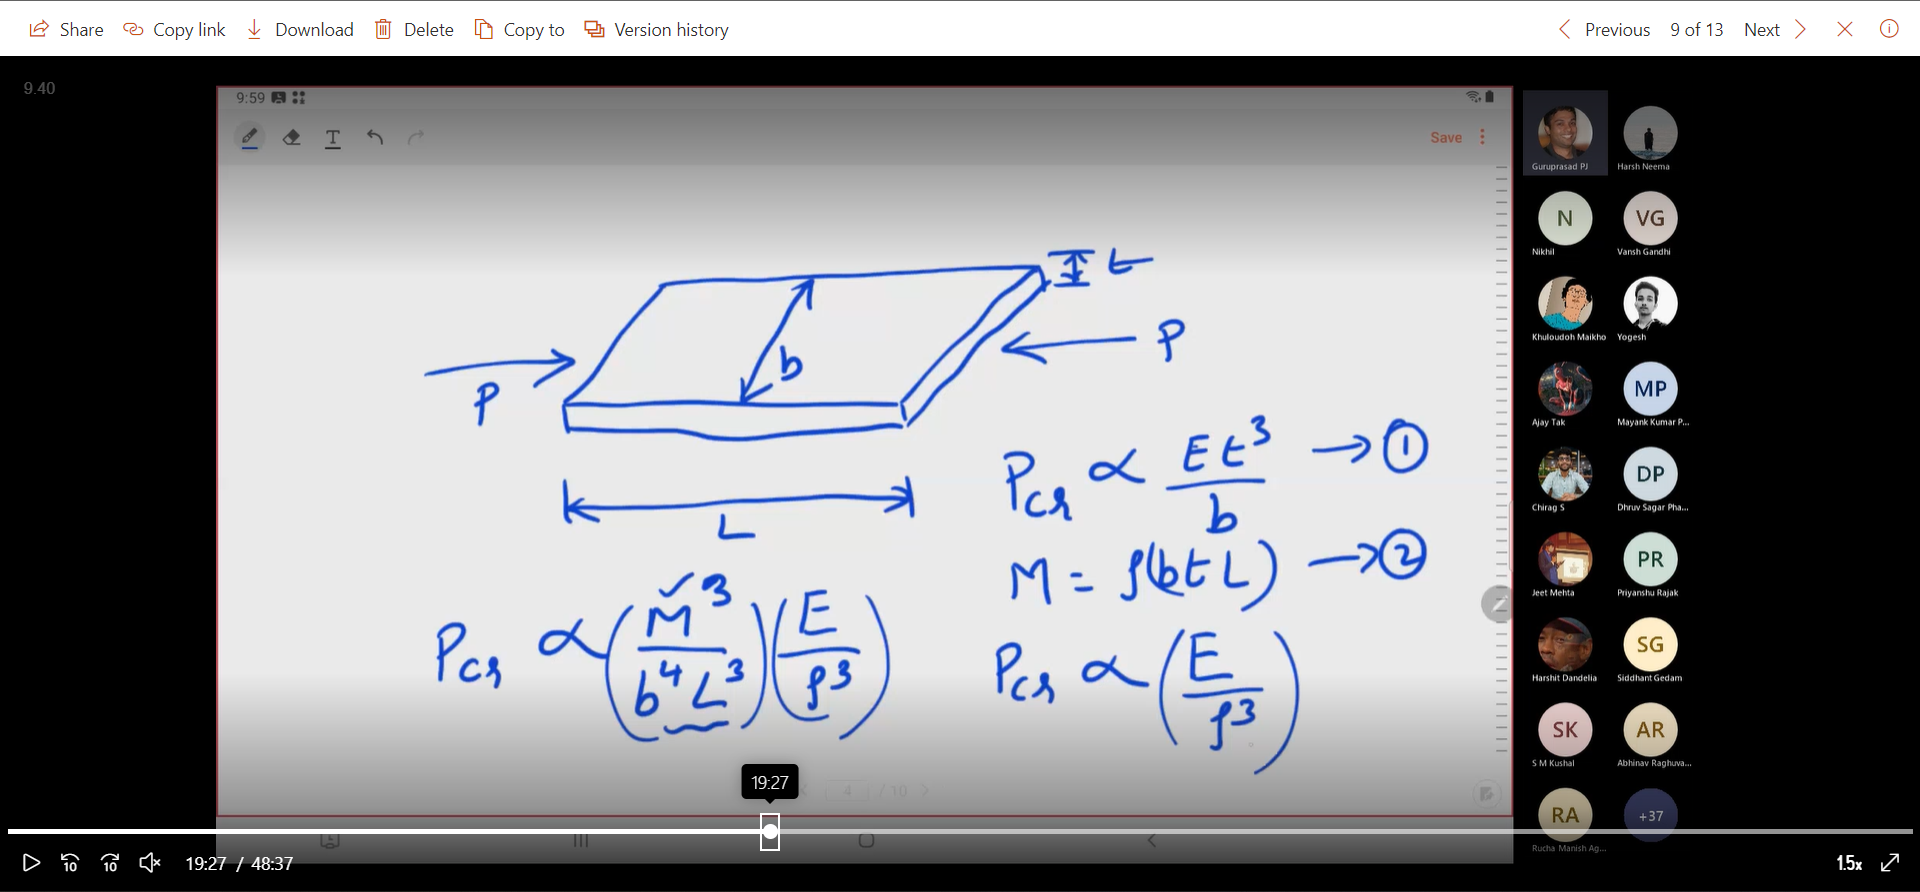 Share Copy link Download Delete Copy to Version history Previous 9 of 13 Next
9.40
9:59
Save
t
P
b
P
L
Pcr ∝ Et³/b → ①
M = ρ(btL) → ②
Pcr ∝ (M³/b⁴L³)(E/ρ³)
Pcr ∝ (E/ρ³)
4 / 10
19:27
Guruprasad PJ
Harsh Neema
N
Nikhil
VG
Vansh Gandhi
Khuloudoh Maikho
Yogesh
Ajay Tak
MP
Mayank Kumar P...
Chirag S
DP
Dhruv Sagar Pha...
Jeet Mehta
PR
Priyanshu Rajak
Harshit Dandelia
SG
Siddhant Gedam
SK
S M Kushal
AR
Abhinav Raghuva...
RA
Rucha Manish Ag...
+37
10 10 19:27 / 48:37 1.5x